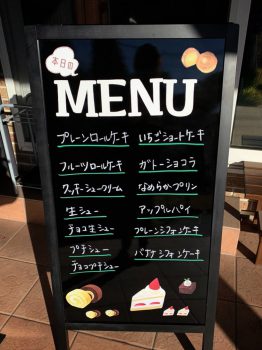 本日の
MENU
プレーンロールケーキ
フルーツロールケーキ
クッキーシュークリーム
生シュー
チョコ生シュー
プチシュー
チョコプチシュー
いちごショートケーキ
ガトーショコラ
なめらかプリン
アップルパイ
プレーンシフォンケーキ
バナナシフォンケーキ